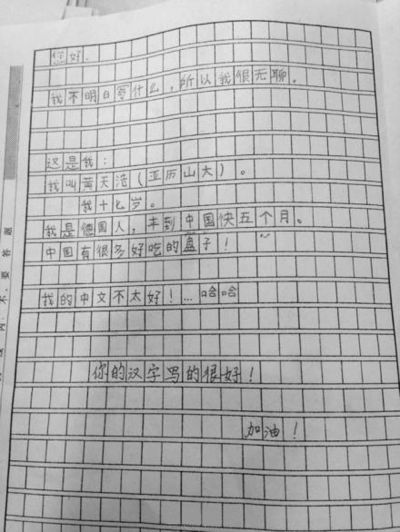 你好.
我不明白写什么，所以我很无聊。
这是我：
我叫黄天浩（亚历山大）。
我十七岁。
我是德国人，来到中国快五个月。
中国有很多好吃的盘子！
我的中文不太好！...哈哈
你的汉字写的很好！
加油！